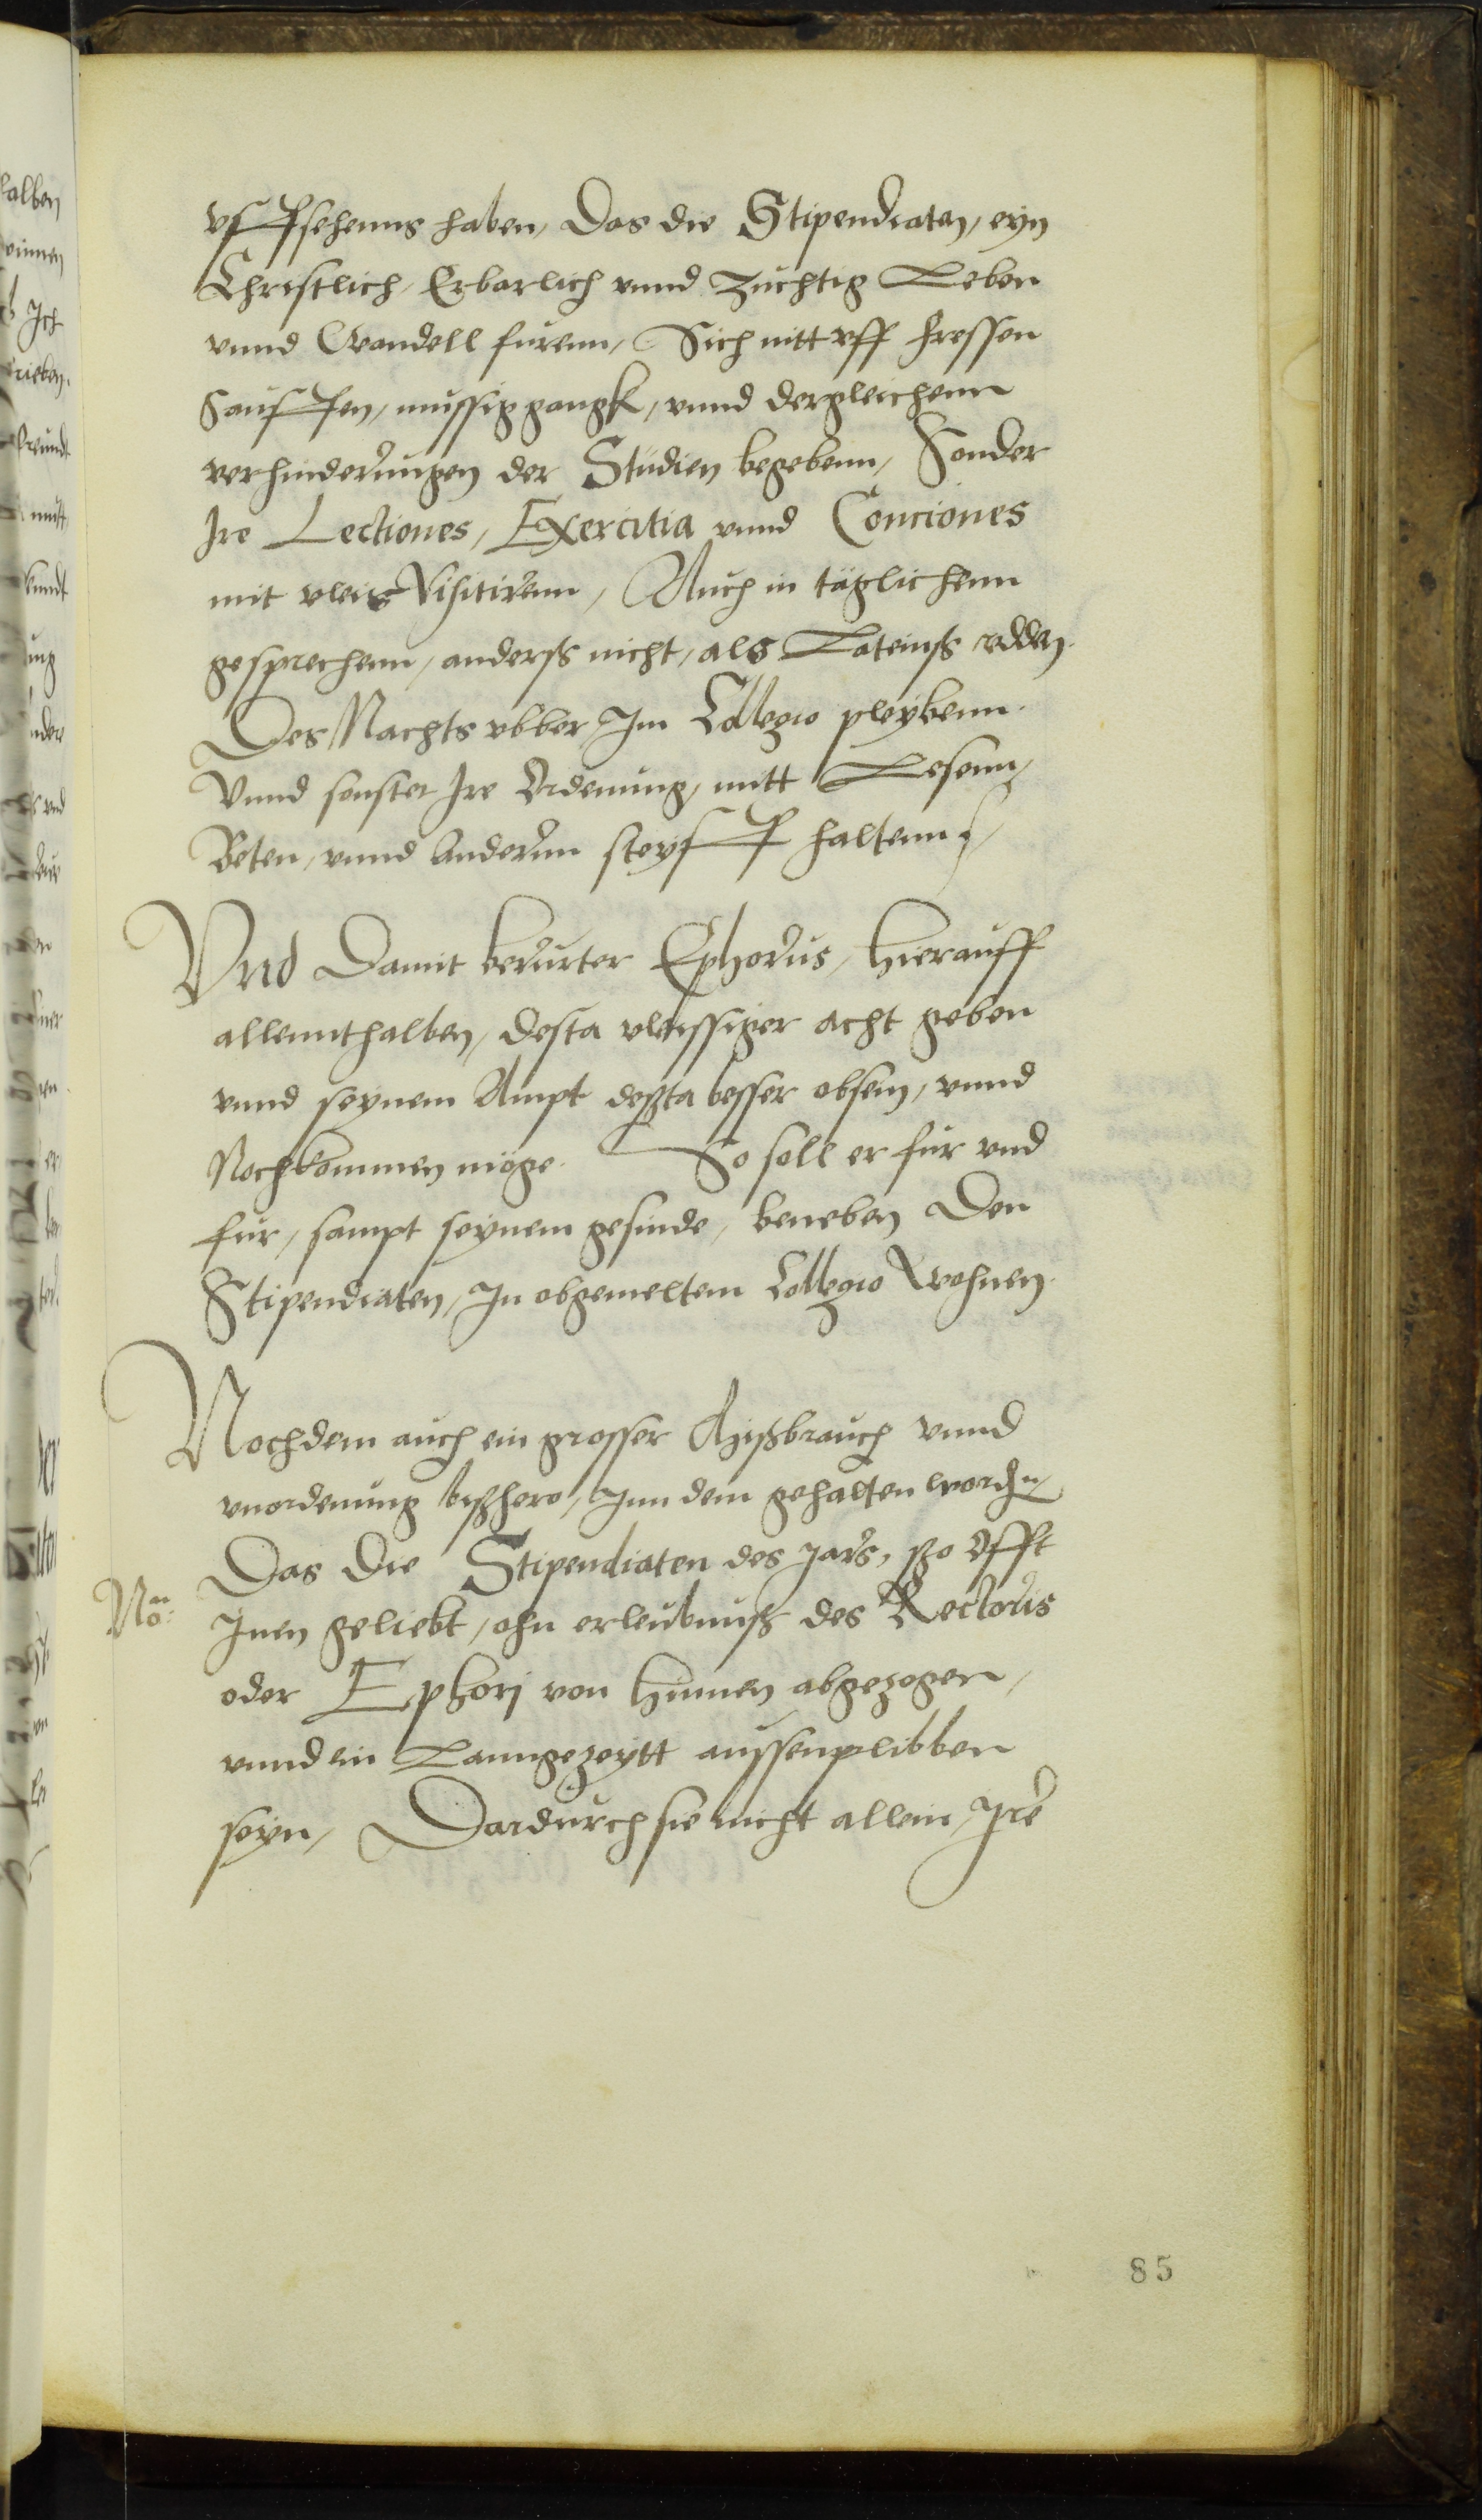 vffsehenns haben, Das die Stipendiaten, eyn
Christlich, Erbarlich vnnd Zuchtig Leben
vnnd Wandell furenn, Sich nitt vff fressen
Sauffen, mussiggangk, vnnd dergleichenn
verhinderungen der Studien begebenn, Sonder
Ire Lectiones, Exercitia vnnd Conciones
mit vleis Visitirenn, Auch in täglichenn
gesprechenn, anderss nicht, als Lateinss redden.
Des Nachts vbber Im Collegio pleybenn.
Vnnd sonster Ire Ordenung, mitt Lesenn,
Beten, vnnd Anderm steyff haltenn,
Vnd Damit berurter Ephorus, hierauff
allennthalben, desta vleissiger acht geben
vnnd seynem Ampt deßta besser obsein, vnnd
Nochkommen möge. So soll er fur vnd
fur, sampt seynem gesinde, beneben Den
Stipendiaten, In obgemeltem Collegio Wohnen.
Nochdem auch ein grosser Mißbrauch vnnd
vnordenung bißhero, Inn dem gehalten worden,
Das Die Stipendiaten des Jars, ßo offt
No:
Inen geliebt, ohn erleubnuß des Rectoris
oder Ephori von hinnen abgezogen,
vnnd ein Lanngezeytt aussenplibben
seyn, Dardurch sie nicht allein, Ire
85